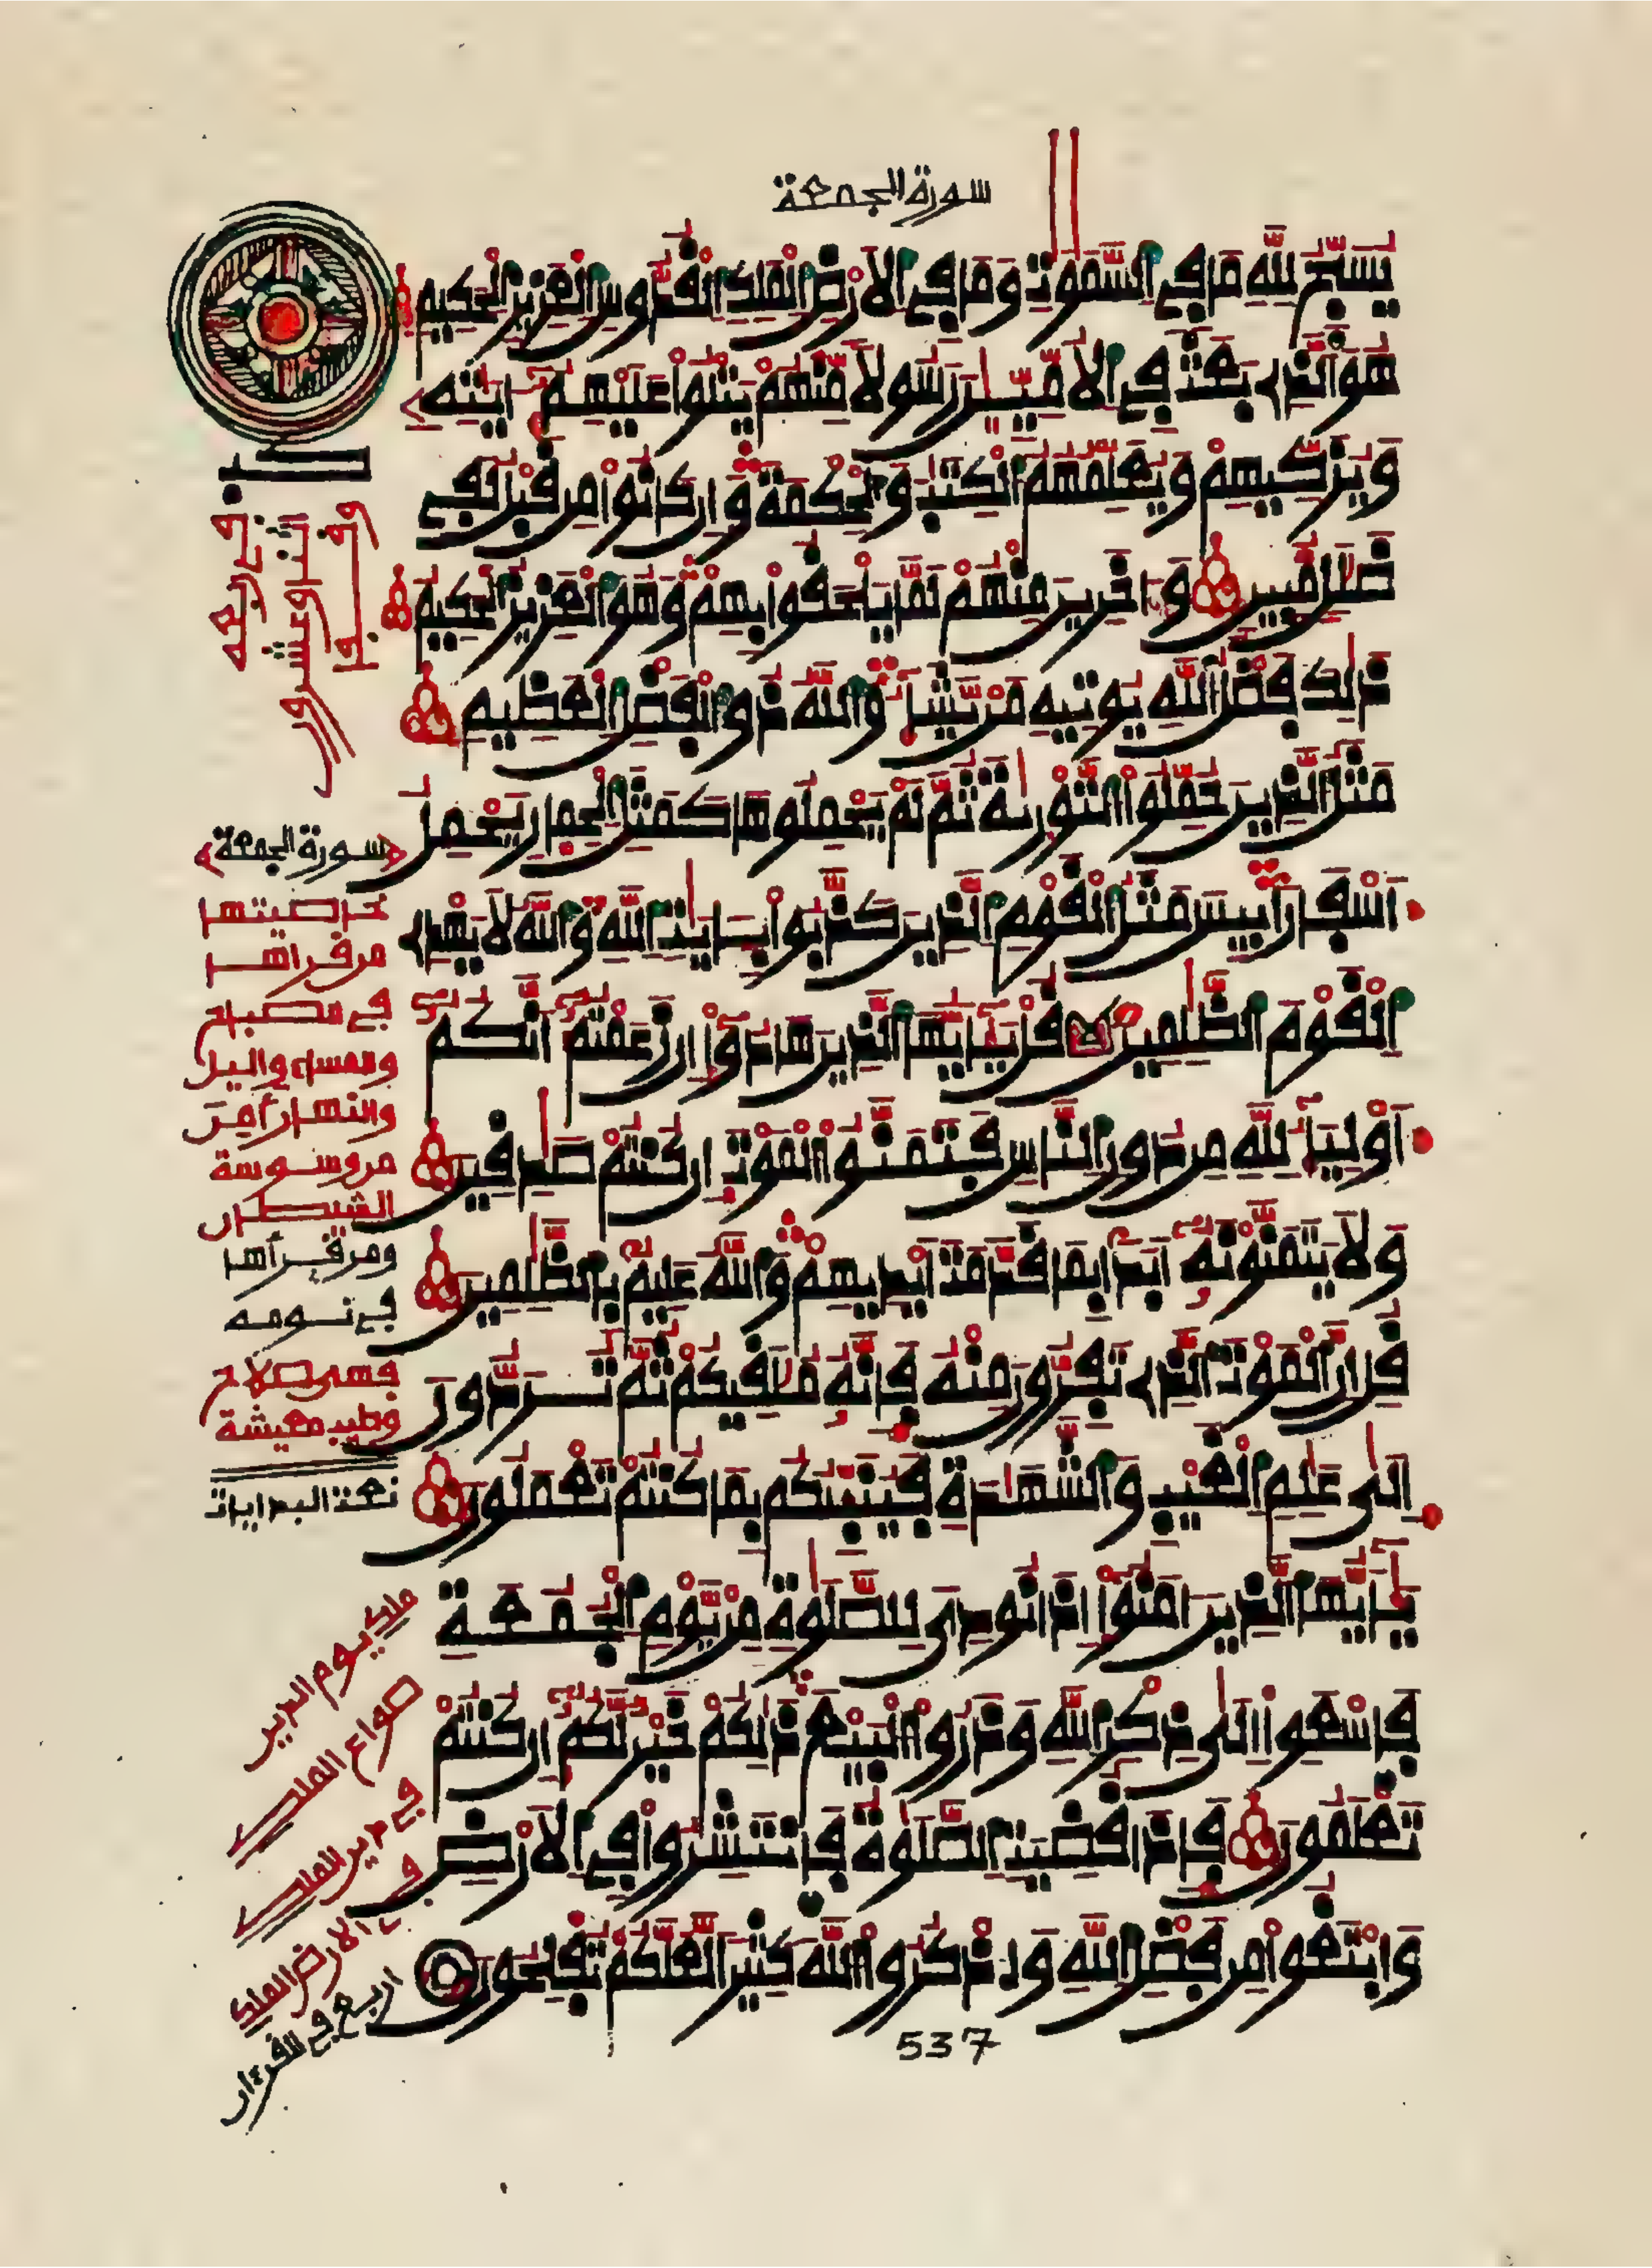 سورة الجمعة
يسبح لله ما في السموت وما في الارض الملك القدوس العزيز الحكيم
هو الذي بعث في الاميين رسولا منهم يتلوا عليهم ءايته
ويزكيهم ويعلمهم الكتب والحكمة وان كانوا من قبل لفي
ضلل مبين وءاخرين منهم لما يلحقوا بهم وهو العزيز الحكيم
ذلك فضل الله يوتيه من يشاء والله ذو الفضل العظيم
مثل الذين حملوا التورية ثم لم يحملوها كمثل الحمار يحمل
اسفارا بيس مثل القوم الذين كذبوا بـايت الله والله لا يهدي
القوم الظلمين قل يأيها الذين هادوا ان زعمتم انكم
أولياء لله من دون الناس فتمنوا الموت ان كنتم صدقين
ولا يتمنونه أبدا بما قدمت ايديهم والله عليم بالظلمين
قل ان الموت الذي تفرون منه فانه ملقيكم ثم تردون
الى علم الغيب والشهدة فينبئكم بما كنتم تعملون
يأيها الذين ءامنوا اذا نودى للصلوة من يوم الجمعة
فاسعوا الى ذكر الله وذروا البيع ذلكم خير لكم ان كنتم
تعلمون فاذا قضيت الصلوة فانتشروا في الارض
وابتغوا من فضل الله واذكروا الله كثيرا لعلكم تفلحون
537
وقفا
اثنا وعشرون
في ربعه
سورة الجمعة
خاصيتها
من قراها
في مصباح
والمساء واليل
والنهار أمن
من وسوسة
الشيطان
ومن قرأها
في نومه
فهي صلاح
وطيب معيشة
نعت البدايات
ملك يوم الدين
صواع الملك
في دين الملك
في الارض الملك
اربع في القرءان